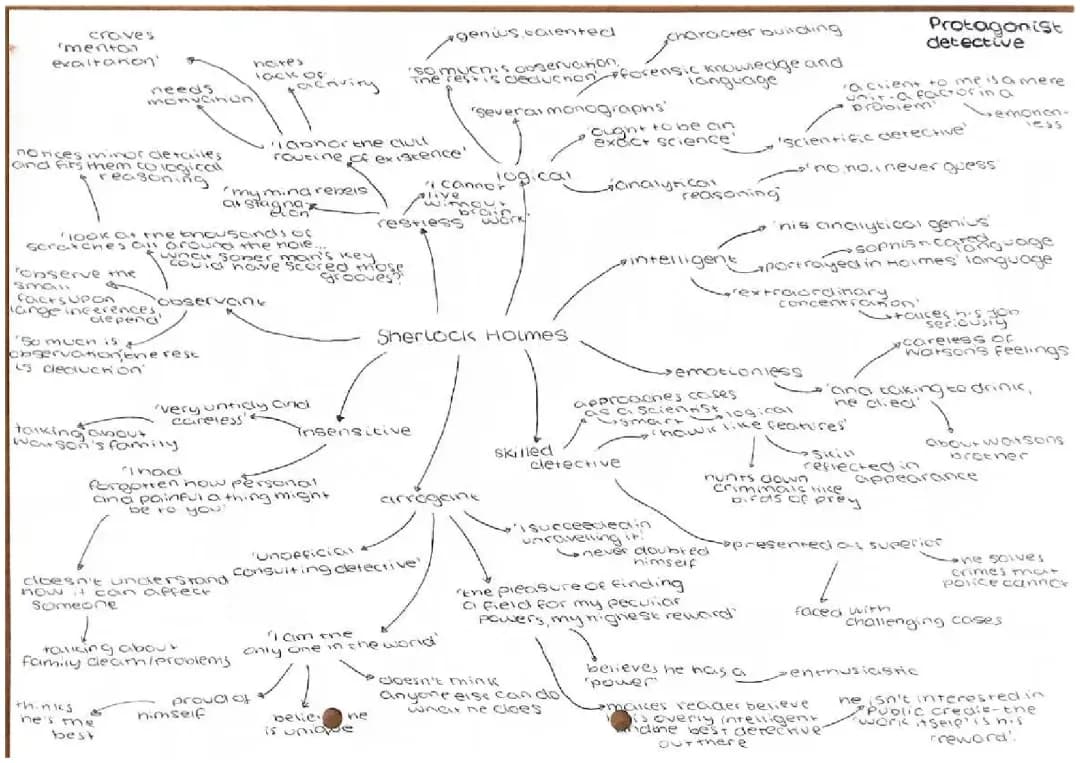 Protagonist
detective
craves
'mental
exaltation'
hates
lack of
activity
needs
motivation
'I abhor the dull
routine of existence'
'my mind rebels
at stagna-
tion'
'I cannot
live
without
brain
work'
restless
genius, talented
character building
'so much is observation,
the rest is deduction'
forensic knowledge and
language
'several monographs'
'ought to be an
exact science'
'scientific detective'
'a client to me is a mere
unit - a factor in a
problem'
emotion-
less
logical
analytical
reasoning
'no, no, I never guess'
notices minor detailes
and fits them to logical
reasoning
'look at the thousands of
scratches all around the hole...
what sober man's key
could have scored those
grooves?'
'observe the
small
facts upon
large inferences
depend'
observant
'so much is
observation, the rest
is deduction'
intelligent
'his analytical genius'
sophisticated
language
portrayed in Holmes' language
'extraordinary
concentration'
takes his job
seriously
Sherlock Holmes
emotionless
careless of
Watson's feelings
'and taking to drink,
he died'
about Watsons
brother
insensitive
'very untidy and
careless'
talking about
Watson's family
'I had
forgotten how personal
and painful a thing might
be to you'
doesn't understand
how it can affect
someone
talking about
family death/problems
skilled
detective
approaches cases
as a scientist
smart
logical
'hawk like features'
skill
reflected in
appearance
hunts down
criminals like
birds of prey
presented as superior
he solves
crimes that
police cannot
faced with
challenging cases
arrogant
'unofficial
consulting detective'
'I succeeded in
unravelling it'
never doubted
himself
'the pleasure of finding
a field for my peculiar
powers, my highest reward'
believes he has a
'power'
enthusiastic
makes reader believe
is overly intelligent
and the best detective
out there
he isn't interested in
public credit - the
'work itself' is his
'reward'.
'I am the
only one in the world'
proud of
himself
thinks
he's the
best
he
is unique
doesn't think
anyone else can do
what he does